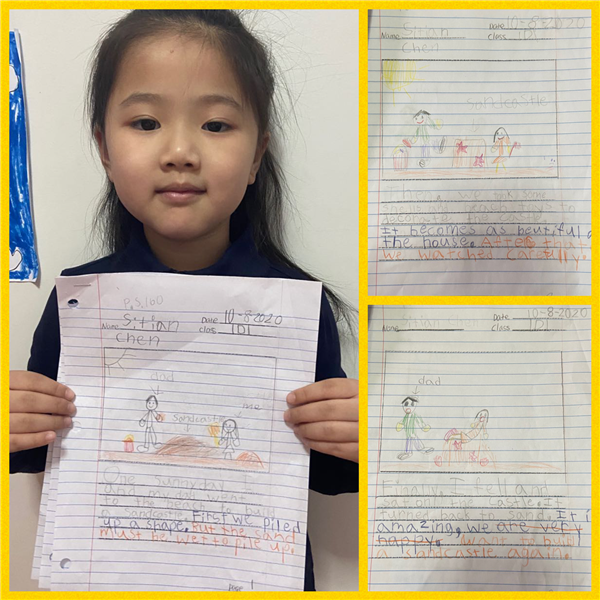 P.S.160
Name Sitian Date 10-8-2020
Chen Class 1D1
dad
me
sandcastle
One sunny day I
and my dad went
to the to build
a Sandcastle. First we piled
up a shape, but the sand
must be wet to pile up.
Page 1
Name Sitian Date 10-8-2020
Chen Class 1D1
sandcastle
some
to
decorate the castle.
It becomes as beutiful a
the house. After that
we watched carefully.
Name Sitian Date 10-8-2020
Class 1D1
dad
Finally, I fell and
sat on the castle. It
turned back to sand. It i
amazing, we are very
happy. I want to build
a sandcastle again.